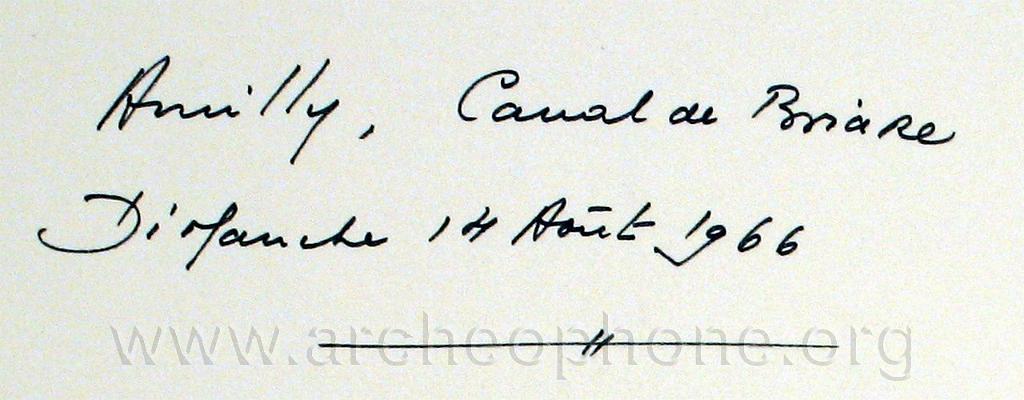 Amilly, Canal de Briare
Dimanche 14 Août 1966
www.archeophone.org